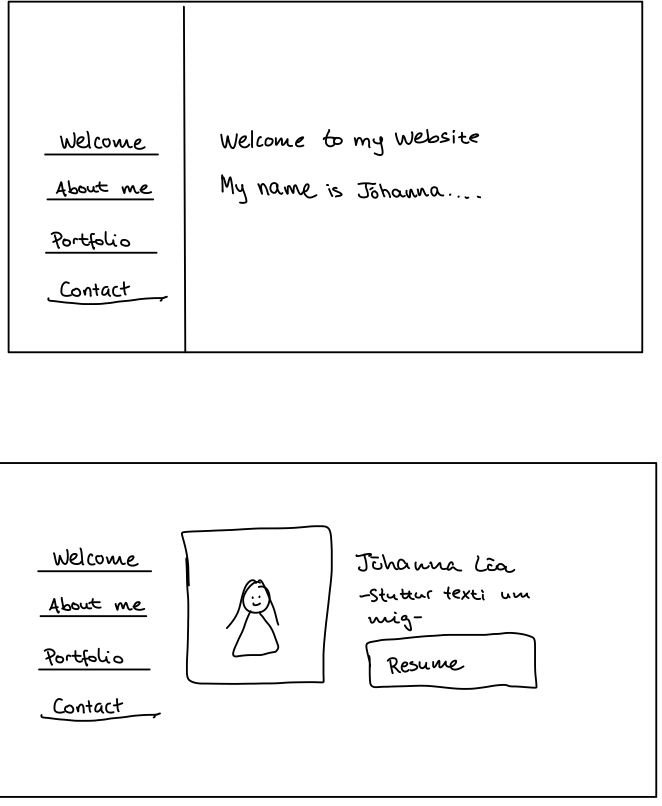 Welcome
About me
Portfolio
Contact
Welcome to my Website
My name is Jóhanna....
Welcome
About me
Portfolio
Contact
Jóhanna Léa
-Stuttur texti um
mig-
Resume